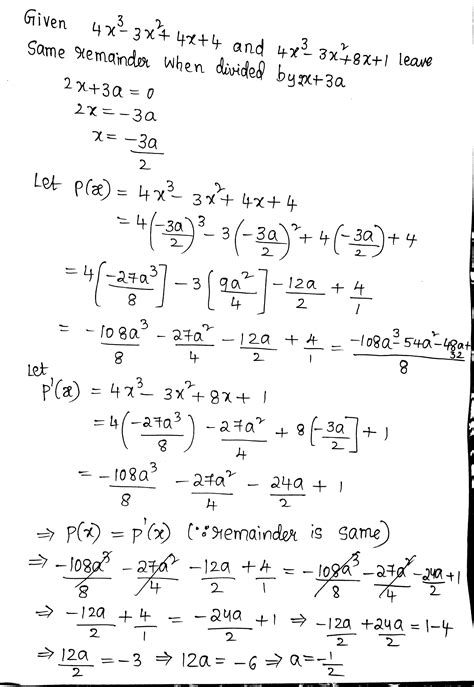 Given 4x³-3x²+4x+4 and 4x³-3x²+8x+1 leave
Same remainder when divided by 2x+3a
2x+3a=0
2x=-3a
x=-3a/2
Let P(x) = 4x³-3x²+4x+4
= 4(-3a/2)³-3(-3a/2)²+4(-3a/2)+4
= 4(-27a³/8]-3[9a²/4]-12a/2+4/1
= -108a³/8-27a²/4-12a/2+4/1 = -108a³-54a²-48a+32/8
Let
P'(x) = 4x³-3x²+8x+1
= 4(-27a³/8)-27a²/4+8[-3a/2]+1
= -108a³/8-27a²/4-24a/2+1
⇒ P(x) = P'(x) (∵remainder is same)
⇒ -108a³/8-27a²/4-12a/2+4/1 = -108a³/8-27a²/4-24a/2+1
⇒ -12a/2+4/1 = -24a/2+1 ⇒ -12a/2+24a/2=1-4
⇒ 12a/2=-3 ⇒ 12a=-6 ⇒ a=-1/2